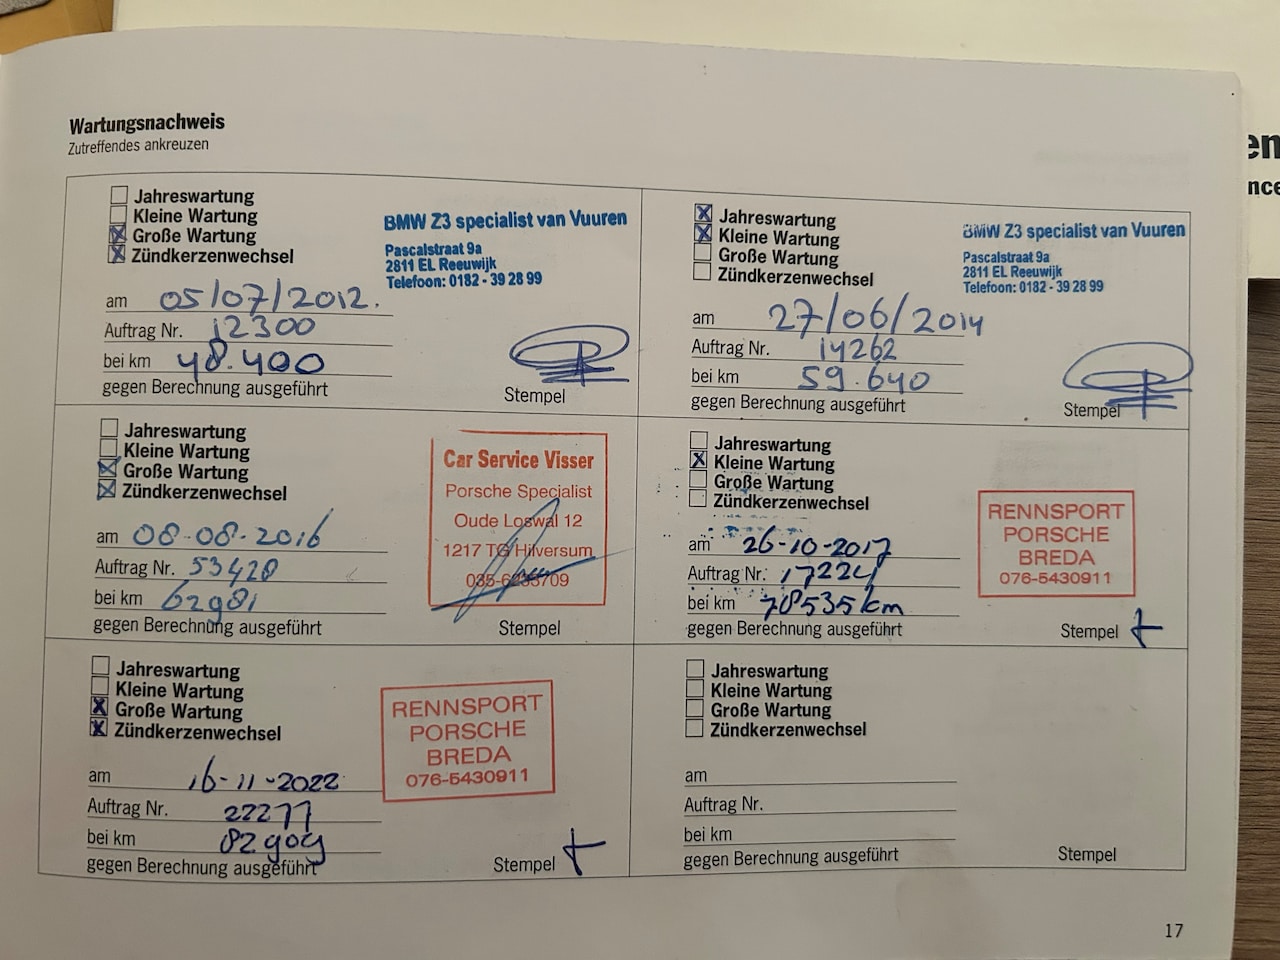 Wartungsnachweis
Zutreffendes ankreuzen
Jahreswartung
Kleine Wartung
Große Wartung
Zündkerzenwechsel
BMW Z3 specialist van Vuuren
Pascalstraat 9a
2811 EL Reeuwijk
Telefoon: 0182 - 39 28 99
am 05/07/2012.
Auftrag Nr. 12300
bei km 48.400
gegen Berechnung ausgeführt
Stempel
Jahreswartung
Kleine Wartung
Große Wartung
Zündkerzenwechsel
BMW Z3 specialist van Vuuren
Pascalstraat 9a
2811 EL Reeuwijk
Telefoon: 0182 - 39 28 99
am 27/06/2014
Auftrag Nr. 14262
bei km 59.640
gegen Berechnung ausgeführt
Stempel
Jahreswartung
Kleine Wartung
Große Wartung
Zündkerzenwechsel
Car Service Visser
Porsche Specialist
Oude Loswal 12
1217 TG Hilversum
am 08-08-2016
Auftrag Nr. 53428
bei km 62981
gegen Berechnung ausgeführt
Stempel
Jahreswartung
Kleine Wartung
Große Wartung
Zündkerzenwechsel
RENNSPORT
PORSCHE
BREDA
076-5430911
am 26-10-2017
Auftrag Nr. 17224
bei km 78535 km
gegen Berechnung ausgeführt
Stempel
Jahreswartung
Kleine Wartung
Große Wartung
Zündkerzenwechsel
RENNSPORT
PORSCHE
BREDA
076-5430911
am 16-11-2022
Auftrag Nr. 22277
bei km 82909
gegen Berechnung ausgeführt
Stempel
Jahreswartung
Kleine Wartung
Große Wartung
Zündkerzenwechsel
am
Auftrag Nr.
bei km
gegen Berechnung ausgeführt
Stempel
17